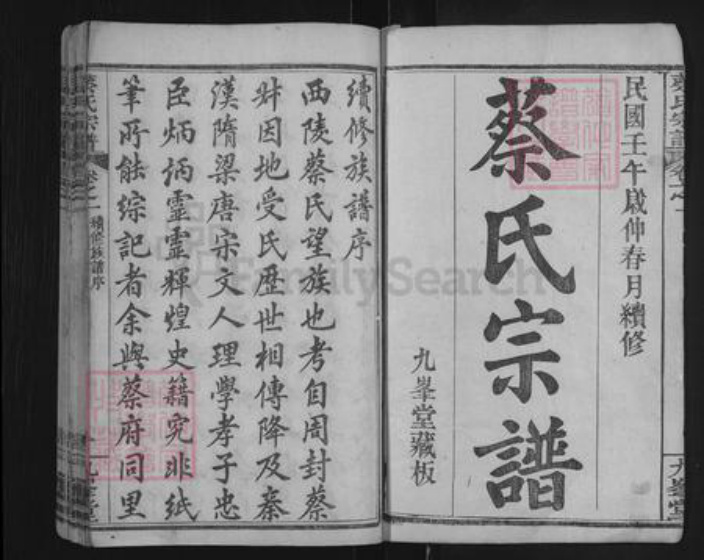 蔡氏宗譜
民國壬午歲仲春月續修
蔡氏宗譜
九峯堂藏板
續修族譜序
西陵蔡氏望族也考自周封蔡
叔因地受氏歷世相傳降及秦
漢隋梁唐宋文人理學孝子忠
臣炳炳靈靈輝煌史籍究非紙
筆所能綜記者余與蔡府同里
蔡氏宗譜
卷之一
續修族譜序
九峯堂
FamilySearch